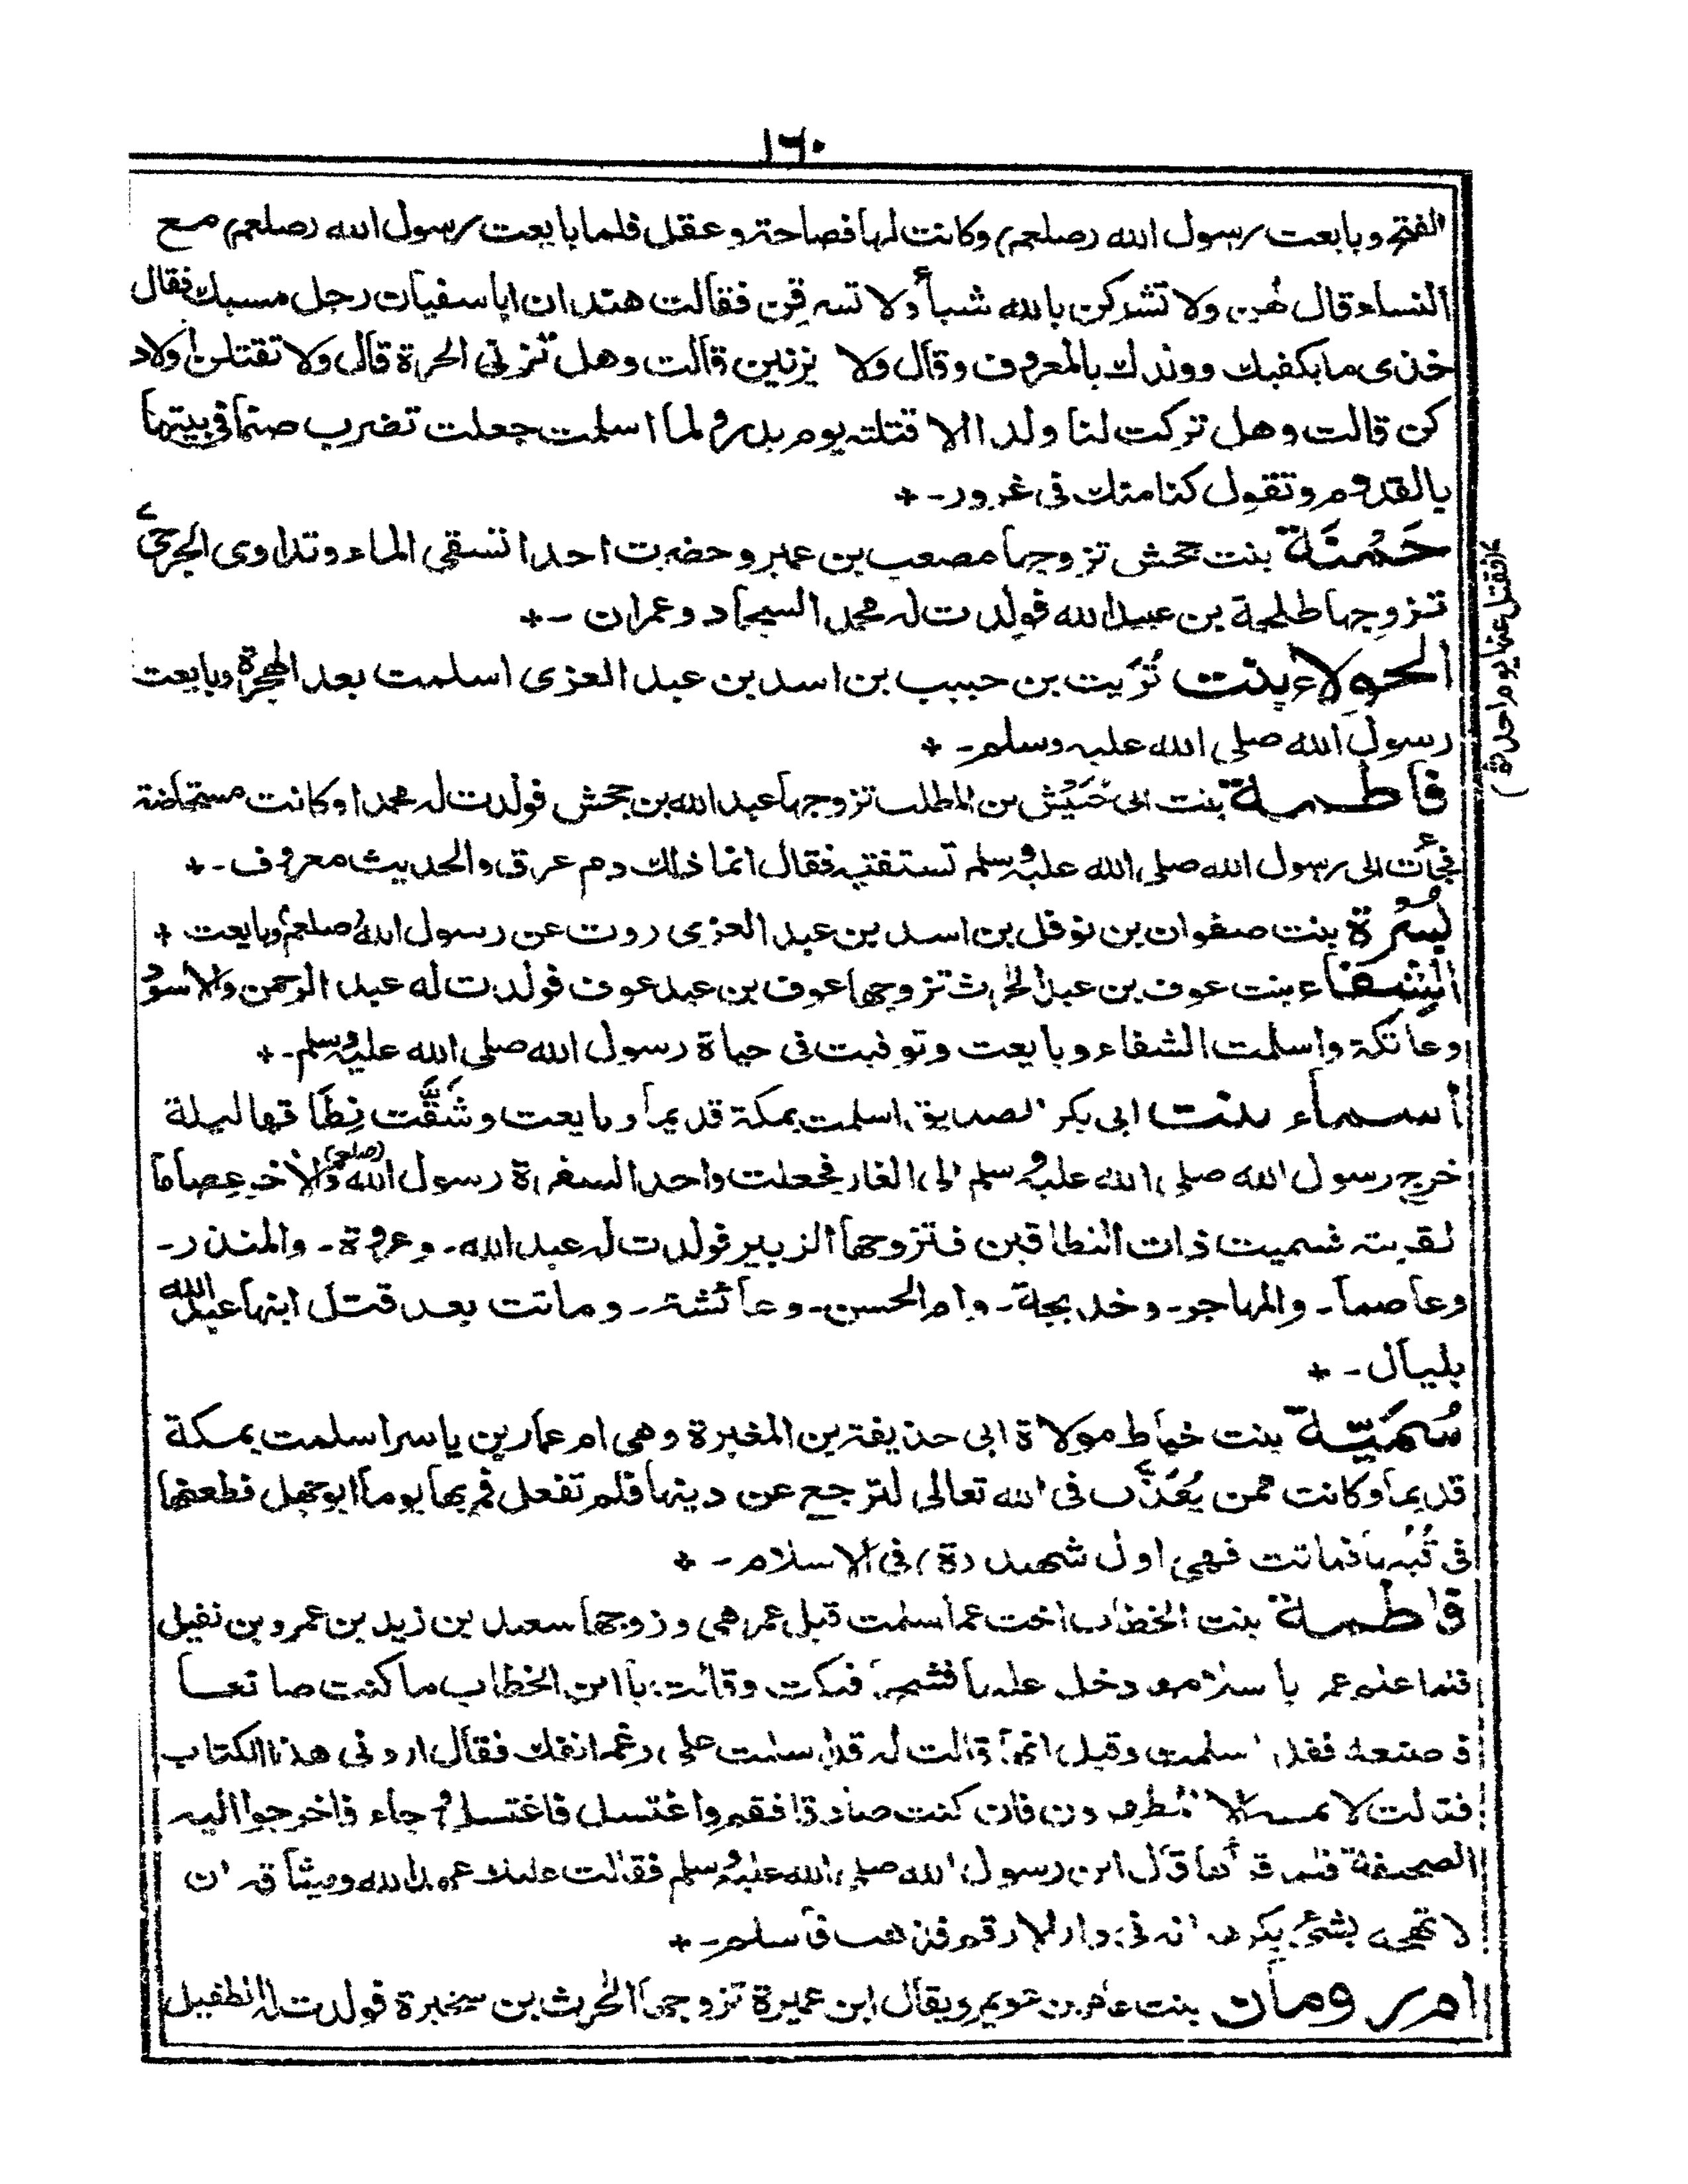 ١٦٠
الفتح وبايعت رسول الله (صلعم) وكانت لها فصاحة وعقل فلما بايعت رسول الله (صلعم) مع
النساء قال لهن ولا تشركن بالله شيأ ولا تسرقن فقالت هند ان ابا سفيان رجل مسيك فقال
خذى ما يكفيك وولدك بالمعروف وقال ولا يزنين قالت وهل تزنى الحرة قال ولا تقتلن اولاد
كن قالت وهل تركت لنا ولدا الا قتلته يوم بدر ولما اسلمت جعلت تضرب صنما فى بيتها
بالقدوم وتقول كنا منك فى غرور -+
حَمْنَة بنت جحش تزوجها مصعب بن عمير وحضرت احدا تسقى الماء وتداوى الجرحى
(فقتل عنها يوم احد)
تزوجها طلحة بن عبيد الله فولدت له محمد السجاد وعمران -+
الحولاء بنت تُوَيت بن حبيب بن اسد بن عبد العزى اسلمت بعد الهجرة وبايعت
رسول الله صلى الله عليه وسلم -+
فاطمة بنت ابى حُبَيْش بن المطلب تزوجها عبد الله بن جحش فولدت له محمدا وكانت مستحاضة
فجأت الى رسول الله صلى الله عليه وسلم تستفتيه فقال انما ذلك دم عرق والحديث معروف -+
بُسْرَة بنت صفوان بن نوفل بن اسد بن عبد العزى روت عن رسول الله (صلعم) وبايعت +
الشِفاء بنت عوف بن عبد الحرث تزوجها عوف بن عبد عوف فولدت له عبد الرحمن والاسود
وعاتكة واسلمت الشفاء وبايعت وتوفيت فى حياة رسول الله صلى الله عليه وسلم -+
أسماء بنت ابى بكر الصديق اسلمت بمكة قديما وبايعت وشَقَّت نِطَاقها ليلة
خرج رسول الله صلى الله عليه وسلم الى الغار فجعلت واحدا لسفرة رسول الله (صلعم) والأخر عصاما
لقربته سميت ذات النطاقين فتزوجها الزبير فولدت له عبد الله - وعروة - والمنذر -
وعاصما - والمهاجر - وخديجة - وام الحسن - وعائشة - وماتت بعد قتل ابنها عبد الله
بليال -+
سُمَيَّة بنت خياط مولاة ابى حذيفة بن المغيرة وهى ام عمار بن ياسر اسلمت بمكة
قديما وكانت ممن يُعَذَّب فى الله تعالى لترجع عن دينها فلم تفعل فمر بها يوما ابو جهل فطعنها
فى قُبُلها فماتت فهى اول شهيد (ة) فى الاسلام -+
فاطمة بنت الخطاب اخت عمر اسلمت قبل عمر هى وزوجها سعيد بن زيد بن عمرو بن نفيل
فلما علم عمر با سلامها دخل عليها فشجها فبكت وقالت يا ابن الخطاب ما كنت صانعا
فاصنعه فقد اسلمت وقيل انها قالت له قد اسلمت على رغم انفك فقال ارونى هذا الكتاب
فقالت لا يمسه الا المطهرون فان كنت صادقا فقم واغتسل فاغتسل وجاء فاخرجوا اليه
الصحيفة فلما قرأها قال اين رسول الله صلى الله عليه وسلم فقالت عليك عهد الله وميثاقه ان
لا تهيجه بشئ يكرهه انه فى دار الارقم فذهب فاسلم -+
ام رومان بنت عامر بن عويمر ويقال ابن عميرة تزوجها الحرث بن سخبرة فولدت له الطفيل